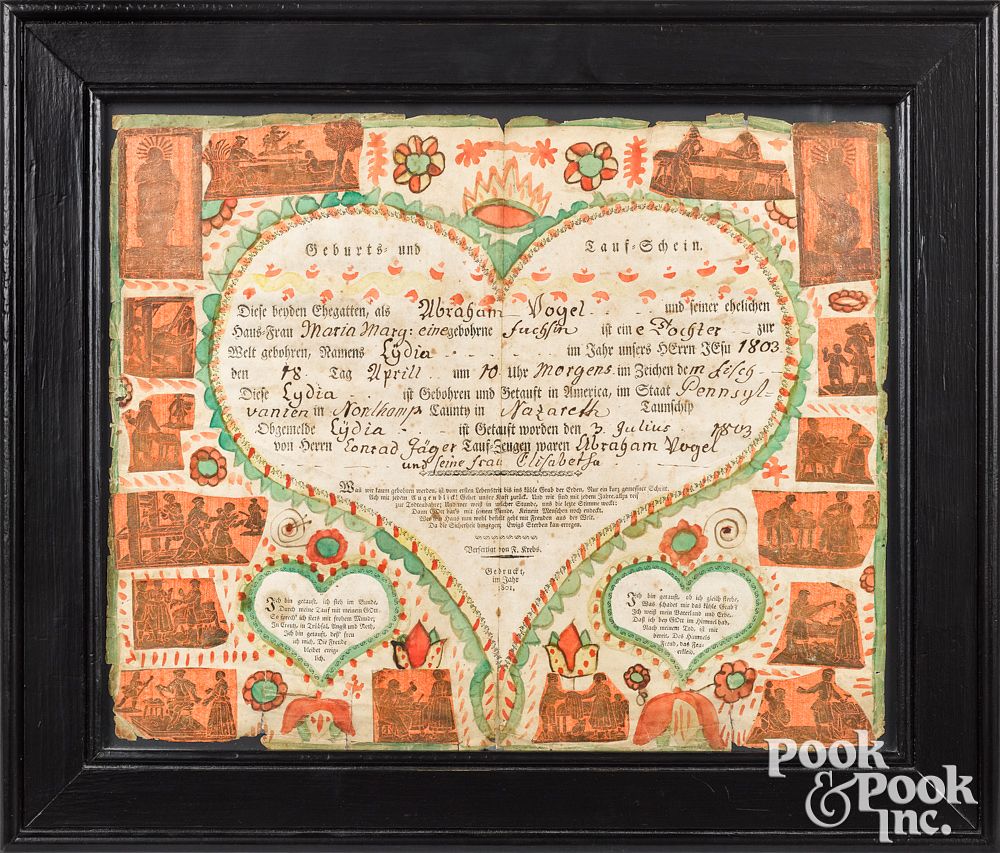 Geburts- und Tauf-Schein.
Diese beyden Ehegatten, als Abraham Vogel und seiner ehelichen
Haus-Frau Maria Marg: eine gebohrne Fuchsin ist ein e Tochter zur
Welt gebohren, Namens Lÿdia im Jahr unsers HErrn JEsu 1803
den 18. Tag Aprill um 10 Uhr Morgens im Zeichen dem Fisch
Diese Lÿdia ist Gebohren und Getauft in America, im Staat Pennsyl-
vanien in Caunty in Nazareth Taunschip
Obgemelde Lÿdia ist Getauft worden den 3. Julius 1803
von Herrn Conrad Jäger Tauf-Zeugen waren Abraham Vogel
und seine frau Elisabetha
Wan wir kaum gebohren werden, ist vom ersten Lebenstrit bis ins kühle Grab der Erden, Nur ein kurz gemessner Schritt.
Ach mit jedem Augenblick! Gehet unsre Kraft zurück. Und wir sind mit jedem Jahre, allzu reif
zur Todtenbahre; Und wer weiß in welcher Stunde, uns die letzte Stimme weckt:
Dann GOtt hat's mit seinem Munde, Keinem Menschen noch endeckt.
Wer sein Haus nun wohl bestelt geht mit Freuden aus der Welt.
Da die Sicherheit hingegen, Ewigs Sterben kan erregen.
Verfertigt von F. Krebs.
Gedruckt,
im Jahr
1801.
Ich bin getauft, ich steh im Bunde,
Durch meine Tauf mit meinem GOtt.
So sprech' ich stets mit frohem Munde;
In Creutz, in Trübsal, Angst und Noth,
Ich bin getauft, deß' freu
ich mich, Die Freude
bleibet ewig-
lich.
Ich bin getauft, ob ich gleich sterbe,
Was schadet mir das kühle Grab?
Ich weiß mein Vaterland und Erbe,
Daß ich bey GOtt im Himmel hab,
Nach meinem Tod, ist mir
bereit, Des Himmels
Freud, das Feyr-
erkleid.
POOK
& POOK
INC.